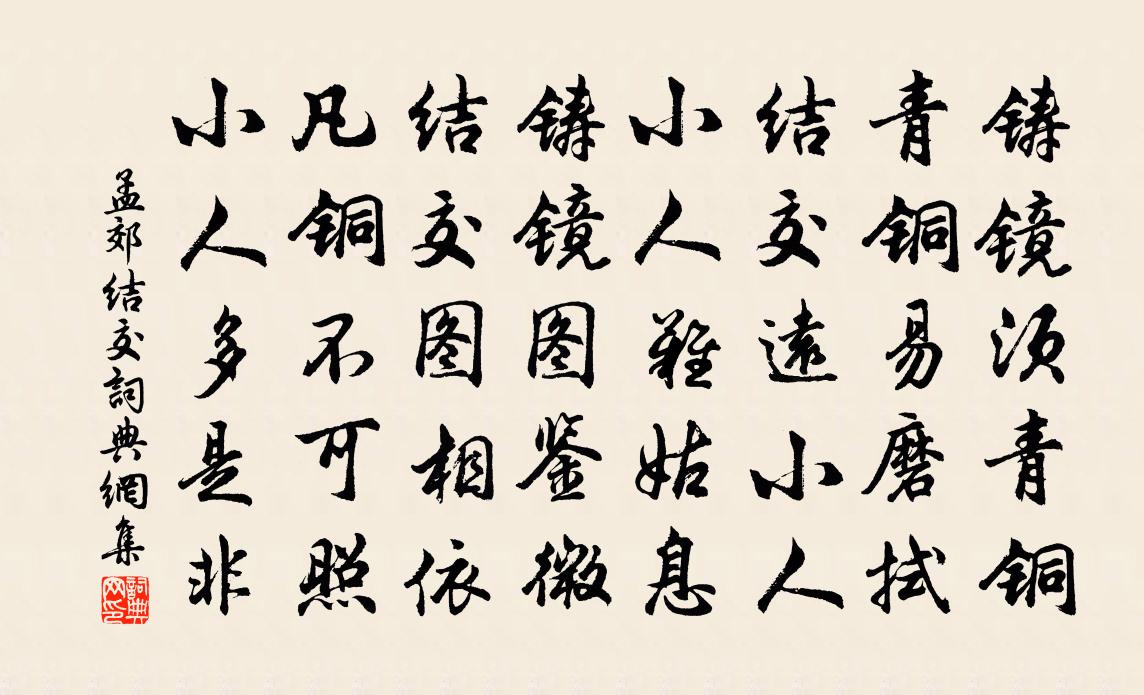 铸镜须青铜
青铜易磨拭
结交遠小人
小人難姑息
铸镜图鉴微
结交图相依
凡铜不可照
小人多是非
孟郊结交詞典網集
詞典
网印